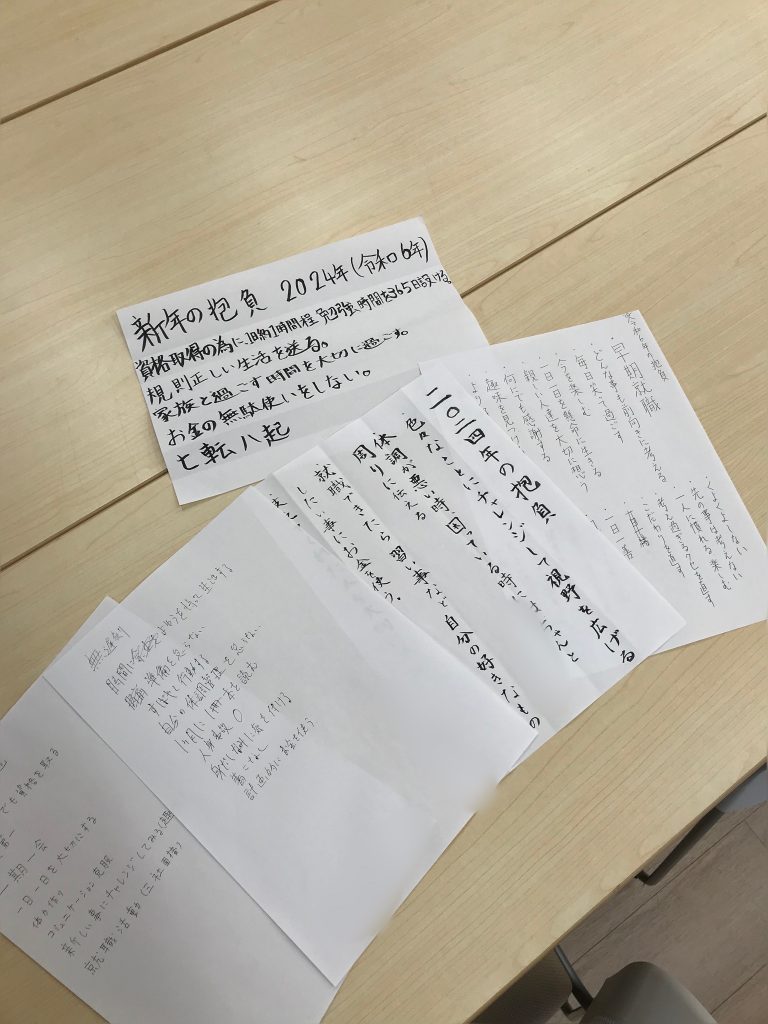 新年の抱負 2024年(令和6年)
資格取得の為に、1日約1時間程勉強時間を365日設ける。
規則正しい生活を送る。
家族と過ごす時間を大切に過ごす。
お金の無駄使いをしない。
七転八起
令和6年の抱負
早期就職
・どんな事も前向きに考える
・毎日笑って過ごす
・今を楽しむ
・一日一日を懸命に生きる
・親しい人達を大切に想う
・何にでも感謝する
・趣味を見つけ
・くよくよしない
・先の事は考えない
・一人に慣れる 楽しむ
・考え過ぎるクセを直す
・こだわりを直す
・一日一善
二〇二四年の抱負
色々なことにチャレンジして視野を広げる
体調が悪い時、困っている時に、ちゃんと
周りに伝える
就職できたら習い事など自分の好きなもの
したい事にお金を使う。
無遅刻
時間に余裕をもって生活する
準備を怠らない
自分の体調管理を怠らない
1ヶ月に1冊本を読む
人身事故 0
身だしなみに気を付ける
計画的にお金を使う
でも資格を取る
第一
一期一会
一日一日を大切にする
体力作り
コミュニケーション克服
新しい事にチャレンジしてみる
就職活動(三社面接)